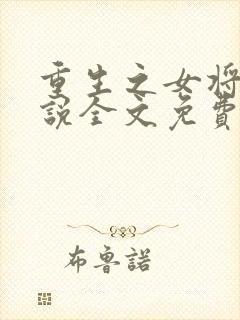 重生之女将
說全文免費
布魯諾